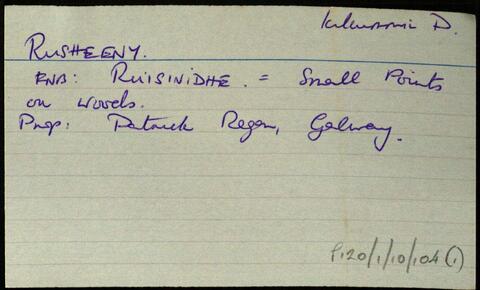 Kilcummin D.
RUSHEENY.
FNB: RÚISINIDHE. = Small Points
on woods.
Prop: Patrick Regan, Galway.
P120/1/10/104(1)